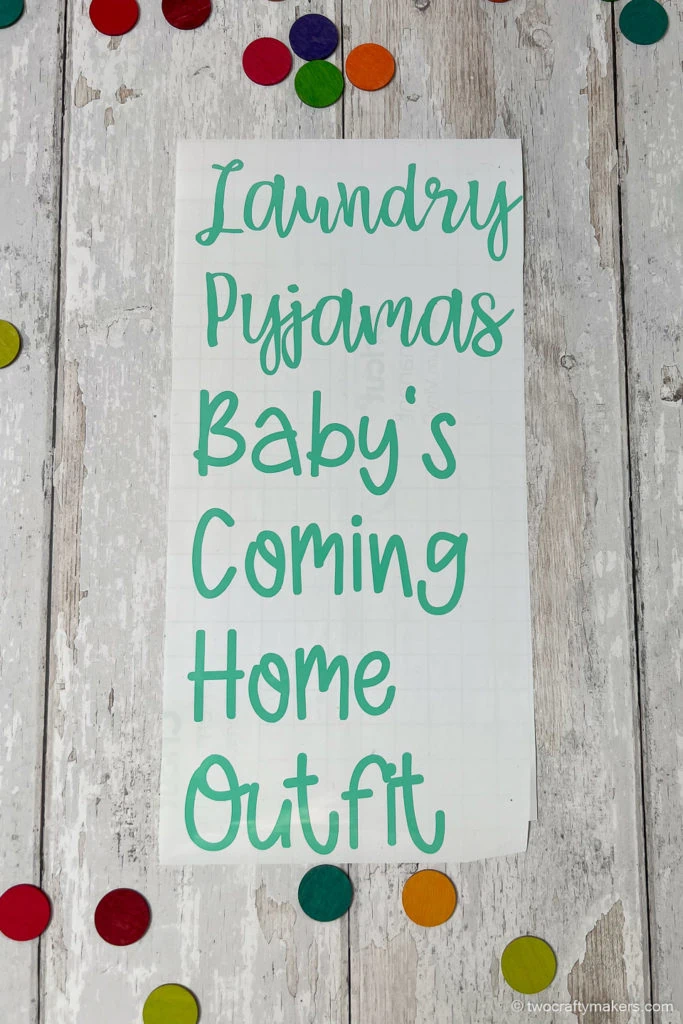 Laundry
Pyjamas
Baby's
Coming
Home
Outfit
© twocraftymakers.com